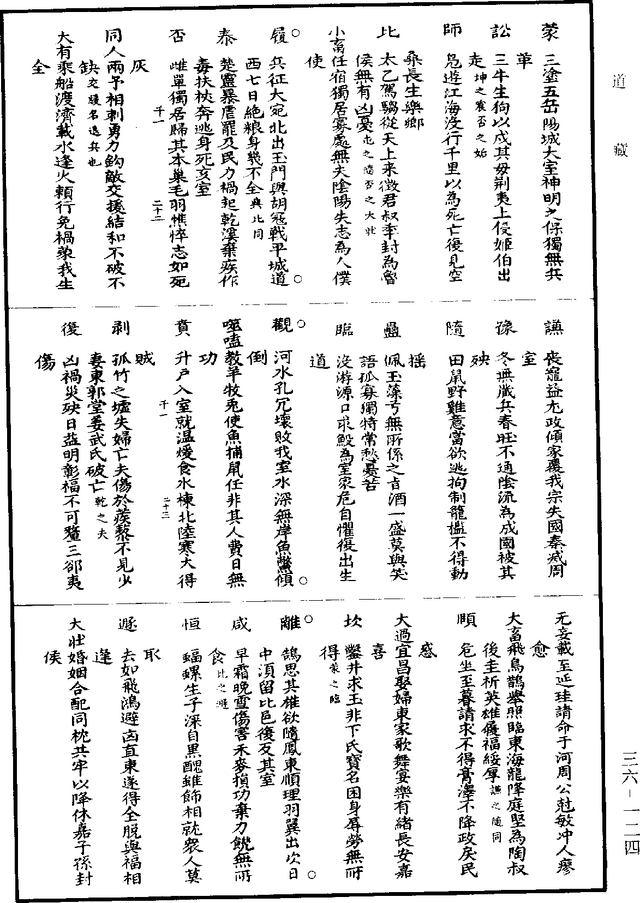 道藏
蒙 三塗五岳陽城大室神明之保獨無兵
革
訟 三牛生狗以戌其母荆夷上侵姬伯出
走坤之震否之姤
師 鳧遊江海沒行千里以為死亡復見空
桑長生樂鄉
比 太乙駕騶從天上來徵君叔季封為魯
侯無有凶憂屯之隨否之大壯
小畜任宿獨居寡處無夫陰陽失志為人僕
使
履 兵征大宛北出玉門與胡寇戰平城道
西七日絕粮身幾不全與比同
泰 楚靈暴虐罷及民力禍起乾溪棄疾作
毒扶柍奔逃身死亥室
否 雌單獨居歸其本巢毛羽憔悴志如死
灰
千一 二十三
同人兩予相刺勇力鈎敵交援結和不破不
缺交援名迭兵也
大有乘船渡濟載水逢火賴行免禍蒙我生
全
謙 喪寵益尤政傾家覆我宗失國秦滅周
室
豫 冬無藏兵春旺不通陰流為成國被其
殃
隨 田鼠野雞意常欲逃拘制籠檻不得動
搖
蠱 佩玉蘂兮無所係之旨酒一盛莫與笑
語孤寡獨特常愁憂苦
臨 沒游源口求鯪為室家危自懼復出生
道
觀 河水孔冗壞敗我室水深無岸魚鱉傾
倒
噬嗑教羊牧兎使魚捕鼠任非其人費日無
功
賁 升戶入室就温煖食水棟北陸寒大得
千一 二十三
賊
剥 孤竹之墟失婦亡夫傷於蒺藜不見少
妻東郭堂姜武氏破亡乾之夬
復 凶禍災殃日益明彰福不可釐三郤夷
傷
无妄載至延珪請命于河周公尅敏冲人瘳
愈
大畜飛鳥鵲舉照臨東海龍降庭堅為陶叔
後圭祈英雄履福綏厚謙之隨同
頤 危坐至暮請求不得膏澤不降政戾民
惑
大過宜昌娶婦東家歌舞宴樂有緒長安嘉
喜
坎 鑿井求玉非下氏寶名困身辱勞無所
得蒙之臨
離 鴣思其雄欲隨鳳東順理羽翼出次日
中須留比邑復反其室
咸 早霜晚雪傷害禾麥損功棄力饑無所
食比之遯
恒 蝠螺生子深目黒醜雖飾相就衆人莫
取
遯 去如飛鴻避凶直東遂得全脫與福相
逢
大壯婚姻合配同枕共牢以降休嘉子孫封
侯
三六—一二四